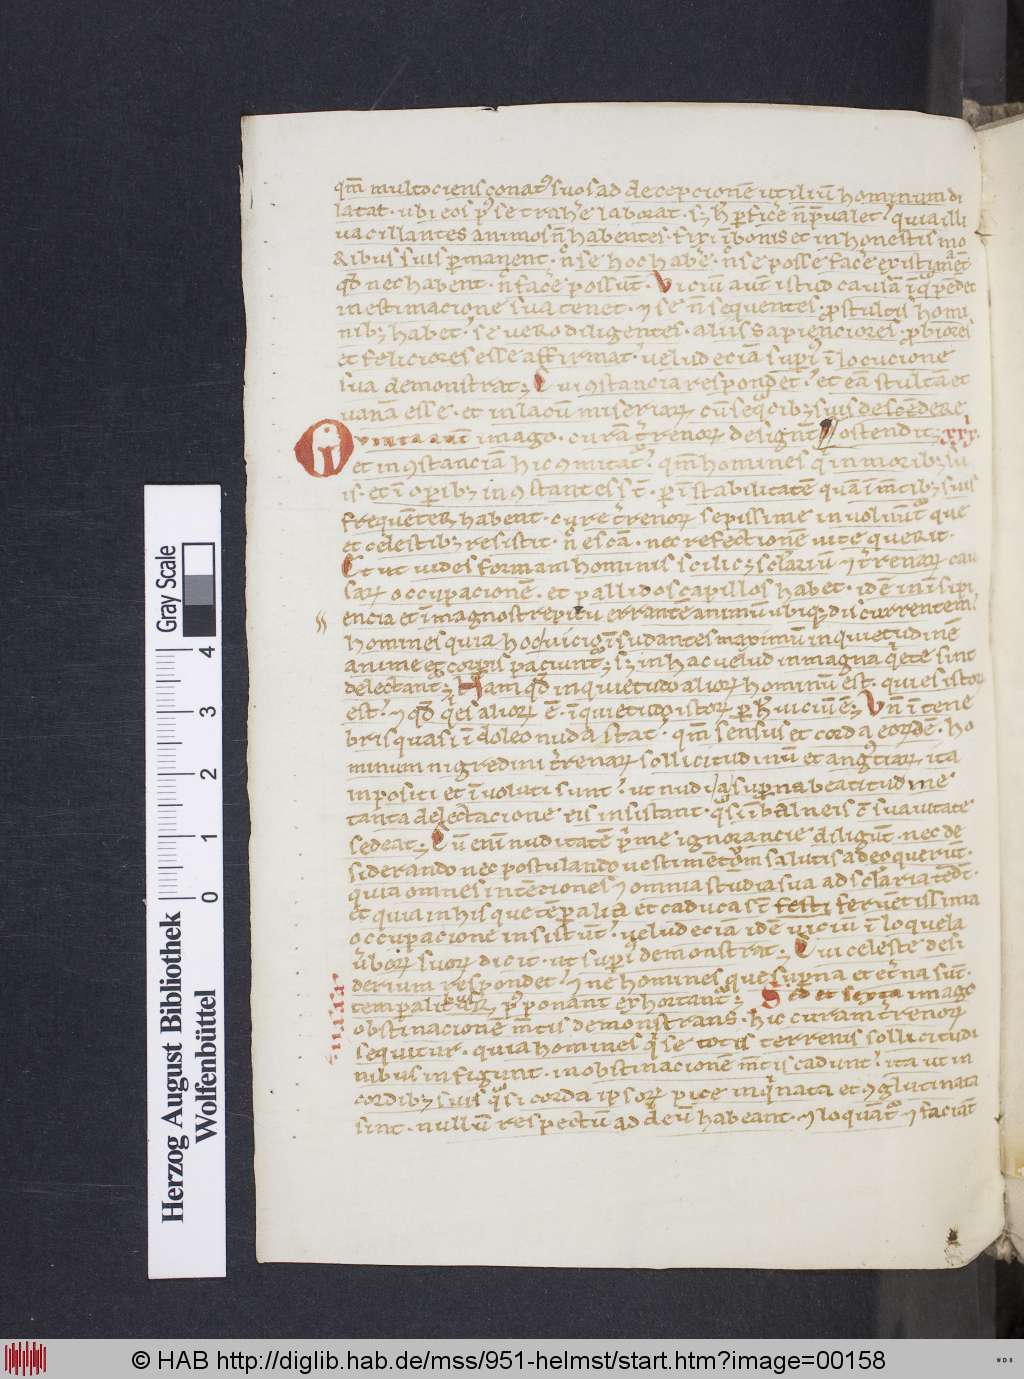 qm̄ multociens conatꝰ suos ad decepcionē utiliū hominum di
latat · ubi eos p̱ꝰ se trahe᷑ laborat · sȝ h̄ ꝑfice᷑ n̄ p̄ualet quia illi
uacillantes animos n̄ habentes · fixi ī bonis et in honestis mo
ribus suis ꝑmanent · se hoc habe᷑ · se posse face᷑ existimēt
qd̄ nec habent · face᷑ possūt · Viciū aūt istud causā
in estimacione sua tenet · ⁊ se n̄ sequentes · ꝓ stultis homi
nibȝ habet · se uero diligentes · aliis sapienciores · ꝓbiores
et feliciores esse affirmat · uelud eciā supͥ ī locucione
sua demonstrat · Cui ꝯstancia respondet · et eā stultā et
uanā esse · et in lacū miseriaꝝ cū seqͣcibȝ suis descēdere
Quinta aūt imago · curā tr̄renoꝝ designat ostendit · xxx.
et inꝯstanciā hic ꝯmitat᷑ · qm̄ homines qͥ in moribȝ su
is · et ī oꝑibȝ inꝯstantes st̄ · ꝑ īstabilitatē quā ī mētibȝ suis
frequēter habent · cure tr̄renoꝝ sepissime inuoluūt᷑ que
et celestibȝ resistit · escā · nec refectionē uite querit ·
Et ut uides formam hominis scilicȝ sclariū ⁊ tr̄renaꝝ cau
saꝝ occupacionē · et pallidos capillos habet · idē in īsipi
encia et ī magno strepitu errante animū ubiqȝ discurrentem
homines quia hoc uiciū īsudantes maximū inquietudinē
anime et corꝑis paciunt᷑ · sȝ in hac uelud in magna qͥete sint
delectant᷑ · Nam qd̄ inquietudo alioꝝ hominū est · quies istoꝝ
est · ⁊ qd̄ qͥes alioꝝ ē · īquietudo istoꝝ ꝑ h̄ uiciū ē · Vn̄ ī tene
bris quasi ī doleo nuda stat · qm̄ sensus et corda eordē · ho
minum nigredini tr̄renaꝝ sollicitudinū et angustiaꝝ ita
inpositi et īuoluti sunt · ut nudi a suꝑna beatitudine
tanta delectacione eis insistant · qͣsi ī balneis cū suauitate
sedeāt · Cū enī nuditatē pͥme ignorancie diligūt · nec de
siderando nec postulando uestimētoꝝ salutis a deo querūt ·
quia omnes intēciones ⁊ omnia studia sua ad sclaria tēdūt ·
et quia in his que tēꝑalia et caduca st̄ feruētissima
occupacione insistūt · uelud ecia idē uiciū ī loquela
uͥboꝝ suoꝝ dicit · ut supͥ demonstrat᷑ · Cui celeste desi
derium respondet · ⁊ ne homines que suꝑna et et̄na sūt ·
temꝑalibus p̱ꝰponant exhortant᷑ · Sed et sexta imago
obstinacionē mētis demonstrans · hic curam tr̄renoꝝ
sequitur · quia homines qͥ se totis terrenis sollicitudi
nibus infigunt · in obstinacionē mētis cadunt · ita ut in
cordibȝ suis qͣsi corda ipsoꝝ pice inqͥnata et ꝯglutinata
sint · nullū respectū ad deū habeant · ⁊ loquāt᷑ ⁊ faciāt
Herzog August Bibliothek
Wolfenbüttel
Gray Scale
0 1 2 3 4
© HAB http://diglib.hab.de/mss/951-helmst/start.htm?image=00158